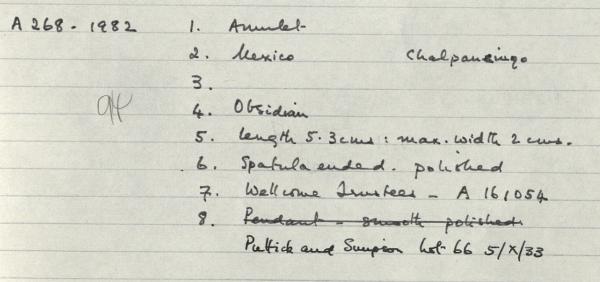 A 268 - 1982 1. Amulet
2. Mexico Chalpancingo
3.
94
4. Obsidian
5. length 5.3 cms : max. width 2 cms.
6. Spatula ended. polished
7. Wellcome Trustees - A 161054
8. Pendant - smooth polished
Puttick and Simpson lot 66 5/X/33